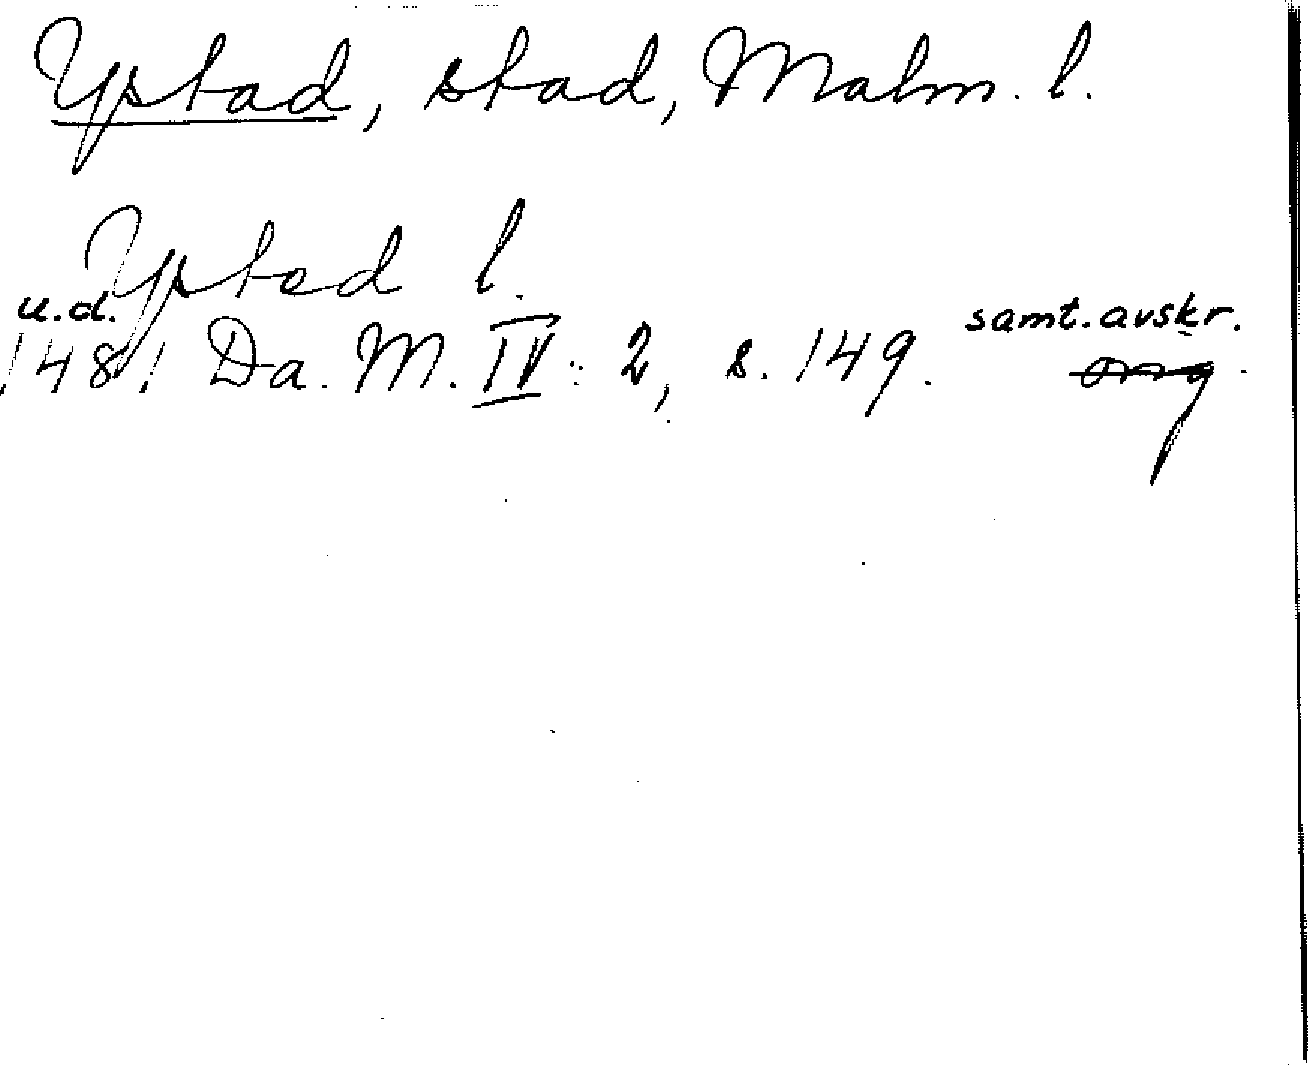 Ystad, stad, Malm. l.
Ysted l.
u.d. samt. avskr.
1481 Da. M. IV: 2, s. 149. org.